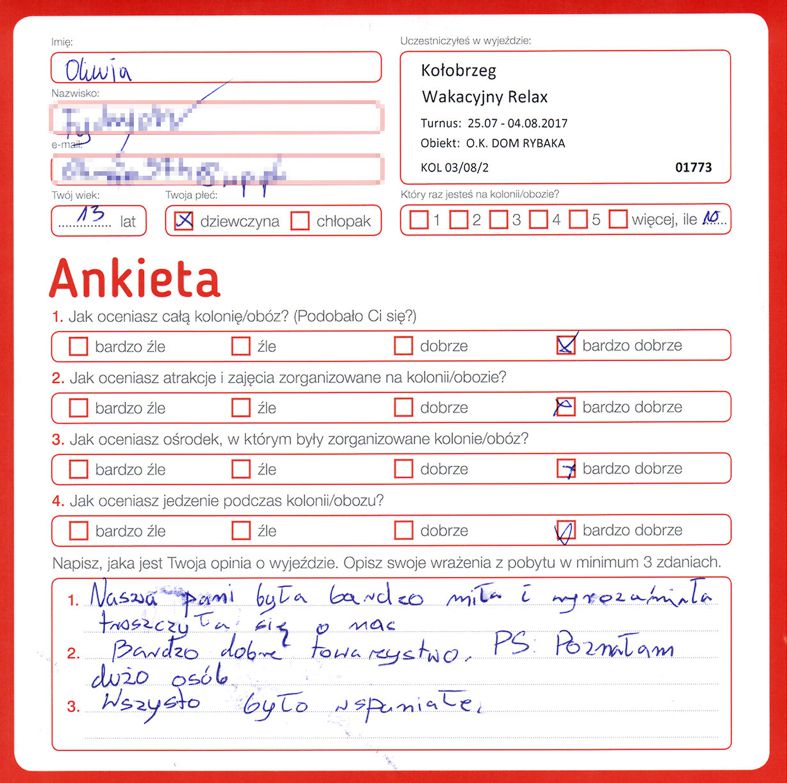 Imię:
Oliwia
Nazwisko:
e-mail:
Twój wiek:
13 lat
Twoja płeć:
dziewczyna chłopak
Uczestniczyłeś w wyjeździe:
Kołobrzeg
Wakacyjny Relax
Turnus: 25.07 - 04.08.2017
Obiekt: O.K. DOM RYBAKA
KOL 03/08/2 01773
Który raz jesteś na kolonii/obozie?
1 2 3 4 5 więcej, ile 10
Ankieta
1. Jak oceniasz całą kolonię/obóz? (Podobało Ci się?)
bardzo źle źle dobrze bardzo dobrze
2. Jak oceniasz atrakcje i zajęcia zorganizowane na kolonii/obozie?
bardzo źle źle dobrze bardzo dobrze
3. Jak oceniasz ośrodek, w którym były zorganizowane kolonie/obóz?
bardzo źle źle dobrze bardzo dobrze
4. Jak oceniasz jedzenie podczas kolonii/obozu?
bardzo źle źle dobrze bardzo dobrze
Napisz, jaka jest Twoja opinia o wyjeździe. Opisz swoje wrażenia z pobytu w minimum 3 zdaniach.
1. Nasza pani była bardzo miła i wyrozumiała
troszczyła się o nas
2. Bardzo dobre towarzystwo. PS: Poznałam
dużo osób
3. Wszysto było wspaniałe.